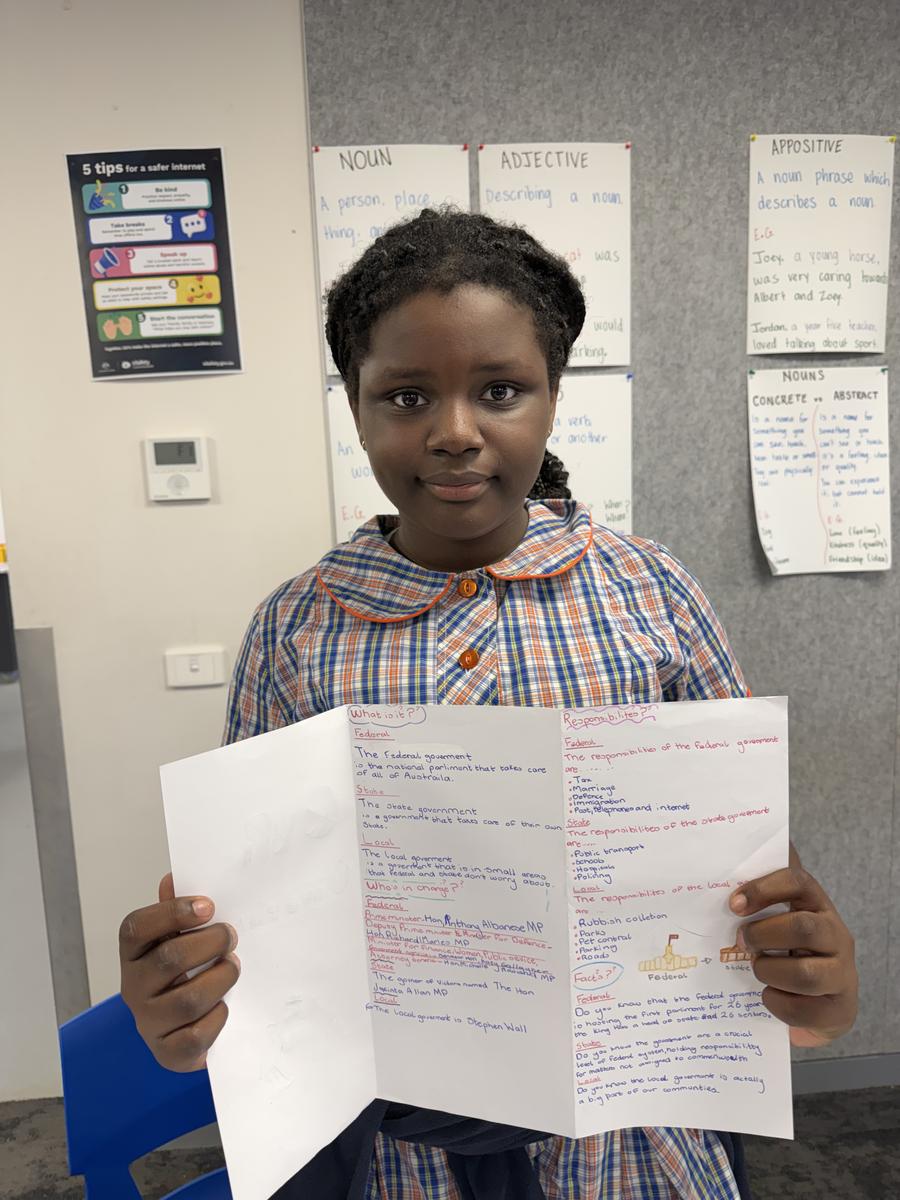 5 tips for a safer internet
1
Be kind
2
Take breaks
3
Speak up
4
Protect your space
5
Start the conversation
NOUN
A person, place,
thing,
ADJECTIVE
Describing a noun.
cat was
would
barking.
APPOSITIVE
A noun phrase which
describes a noun.
E.G
Joey, a young horse,
was very caring towards
Albert and Zoey.
Jordan, a year five teacher,
loved talking about sport.
An
wo
E.G
a verb
or another
When?
Where?
NOUNS
CONCRETE vs ABSTRACT
Is a name for
something you
can see, touch,
hear, taste or smell
They are physically
real.
E.G
Is a name for
something you
can't see or touch
it's a feeling, idea
or quality
You can experience
it, but cannot hold
it.
E.G
Love (feeling)
Kindness (quality)
Friendship (idea)
What is it?
Federal
The Federal goverment
is the national parliment that takes care
of all of Austraila.
State
The state government
is a government that takes care of their own
State.
Local
The local goverment
is a goverment that is in small areas
that federal and state don't worry about.
Who's in charge?
Federal
Prime minister-Hon Anthony Albanese MP
Deputy Prime minister & Minister for Defence-
Hon Richard Marles MP
Minister for Finance, Women, Public service,
Attorney General - Hon Michelle Rowland MP
State
The goverer of Victoria named The Hon
Jacinta Allan MP
Local
The Local goverment is Stephen Wall
Responsibilites?
Federal
The responsibilities of the Federal goverment
are......
• Tax
• Marriage
• Defence
• Immigration
• Post, telephones and internet
State
The responsibilites of the state government
are....
• Public transport
• Schools
• Hospitals
• Policing
Local
The responsibilites of the local
are
• Rubbish colletion
• Parks
• Pet control
• Parking
• Roads
Federal
State
Facts?
Federal
Do you know that the Federal
is hosting the first parliment for 26 years
the King was a head of state and 26
State
Do you know the goverment are a crucial
level of federal system, holding responsibility
for matters not assigned to commenwealth
Local
Do you know the local goverment is actally
a big part of our communities.